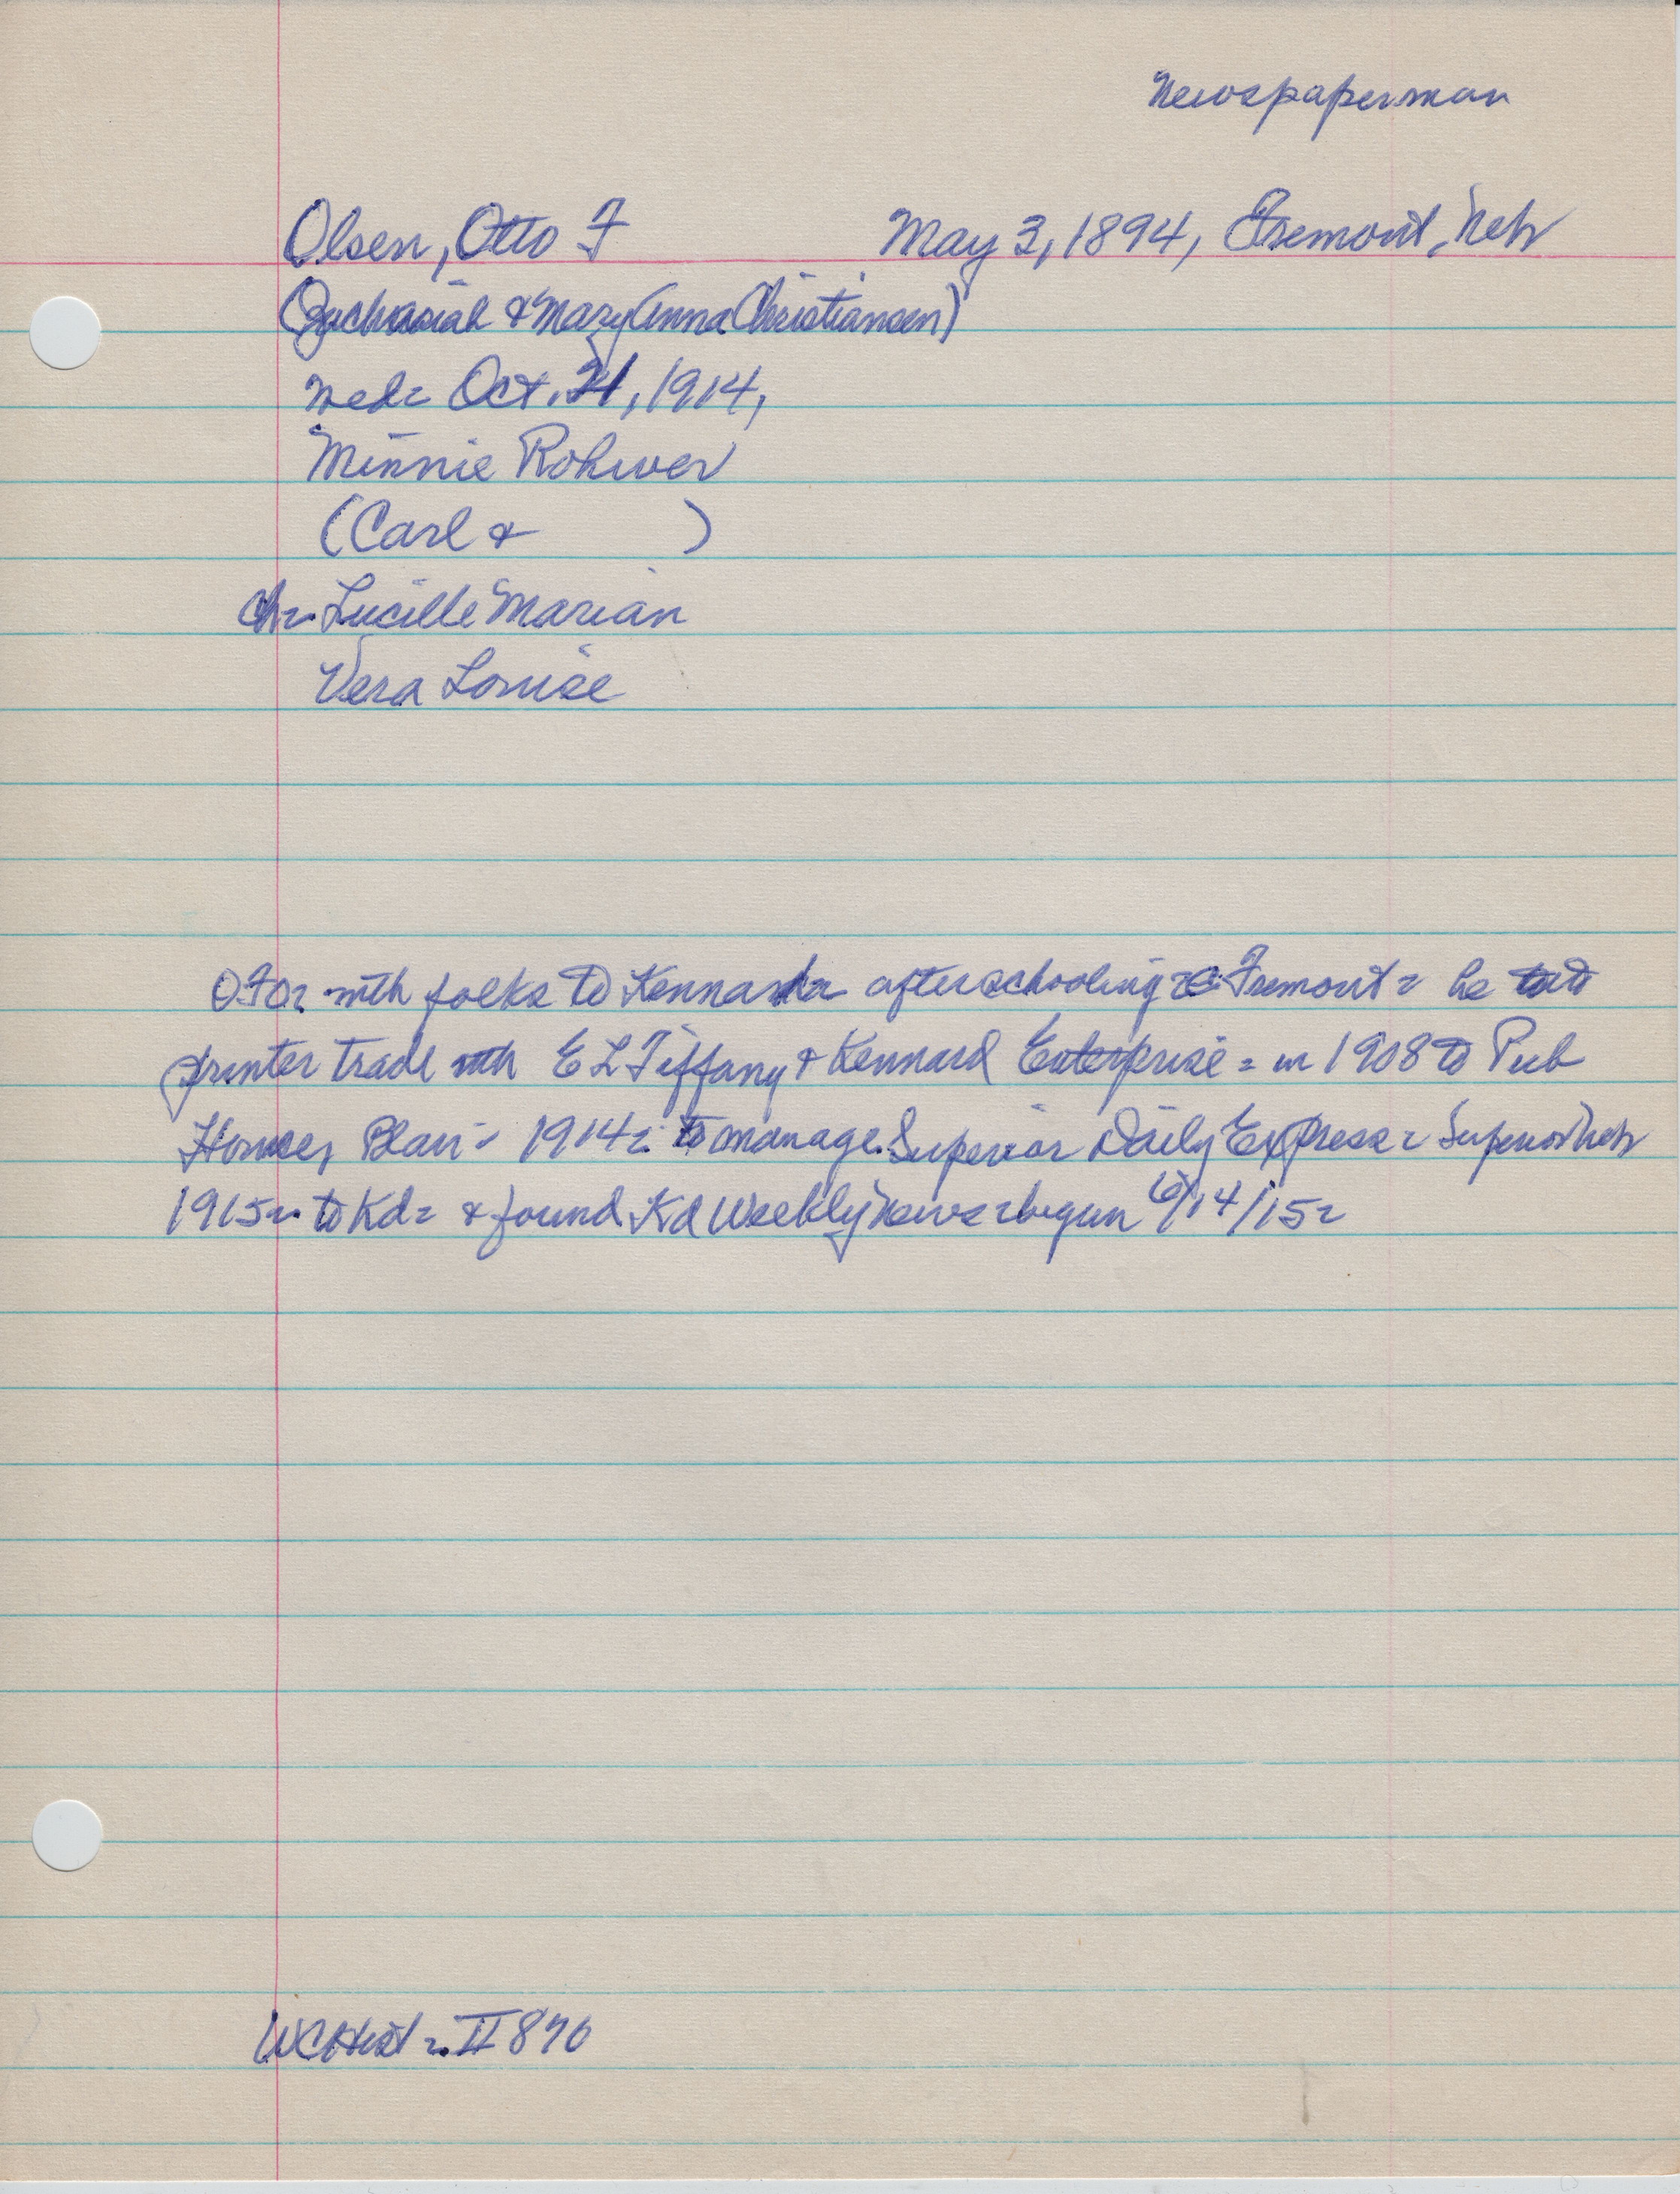 Newspaperman
Olsen, Otto F May 3, 1894, Fremont, Nebr
(Zachariah & Mary Anna Christiansen)
wed= Oct. 21, 1914,
Minnie Rohwer
(Carl & )
ch= Lucille Marian
Vera Louise
with folks to after schooling Fremont= he
printer trade with E L Tiffany & Kennard Enterprise = in 1908 to Pub
Blair - 1914= to manage Superior Daily Express = Superior Nebr
1915= to Kd= & found Kd Weekly News = begun 6/14/15=
WCHist = II 890